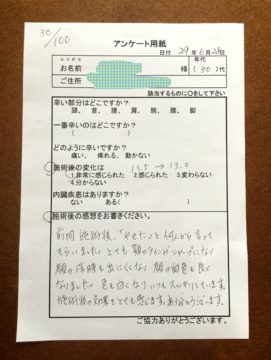 30/100
アンケート用紙
日付 29年6月28日
ふりがな
お名前 様
年代
(30)代
ご住所
該当するものに○をして下さい
辛い部分はどこですか?
頭、首、腰、肩、腕、膝、脚
一番辛いのはどこですか?
どのように辛いですか?
痛い、痺れる、動かない
施術後の変化は 13.5→13.0
1.非常に感じられた 2.感じられた 3.変わらない
4.分からない
内臓疾患はありますか?
ない ある( )
施術後の感想をお書きください。
前回施術後、「やせた」と何人から言って
もらいました。とても顎のラインがシャープになり
顔の も出にくくなり 顔の血色も良く
なりました。色も白くなり いつもスッキリしています。
施術後の効果をとても感じます。ありがとうございます。
ご協力ありがとうございます。